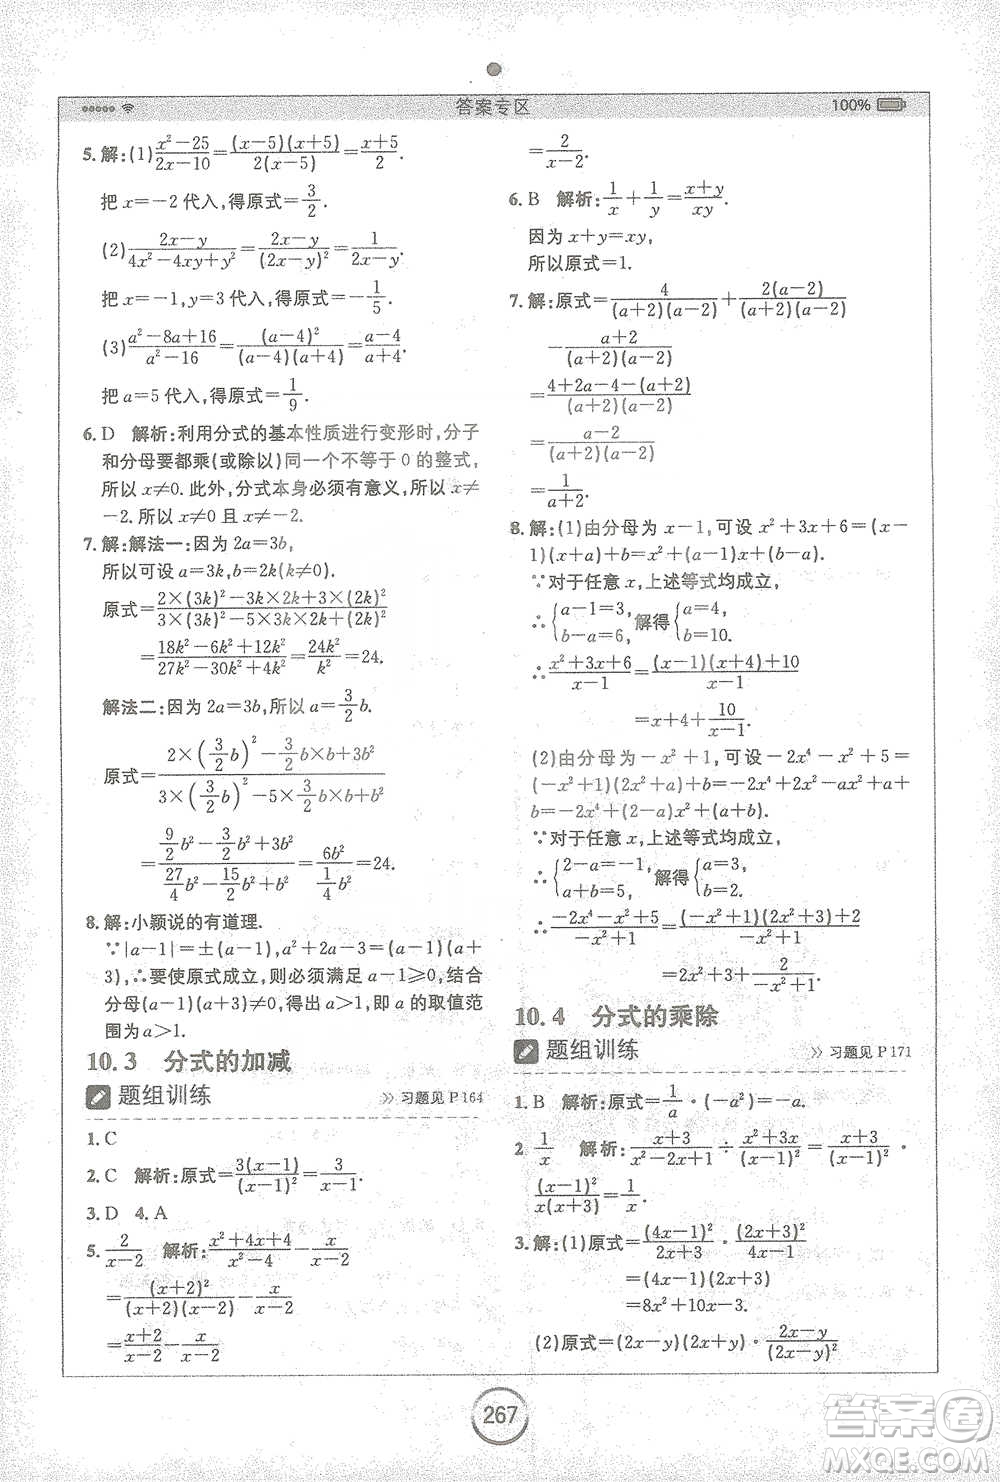 答案专区
100%
5. 解:(1) (x²-25)/(2x-10)=((x-5)(x+5))/(2(x-5))=(x+5)/2.
把 x=-2 代入,得原式=3/2.
(2) (2x-y)/(4x²-4xy+y²)=(2x-y)/((2x-y)²)=1/(2x-y).
把 x=-1,y=3 代入,得原式=-1/5.
(3) (a²-8a+16)/(a²-16)=((a-4)²)/((a-4)(a+4))=(a-4)/(a+4).
把 a=5 代入,得原式=1/9.
6. D 解析:利用分式的基本性质进行变形时,分子
和分母要都乘(或除以)同一个不等于 0 的整式,
所以 x≠0. 此外,分式本身必须有意义,所以 x≠
-2. 所以 x≠0 且 x≠-2.
7. 解:解法一:因为 2a=3b,
所以可设 a=3k,b=2k(k≠0).
原式=(2×(3k)²-3k×2k+3×(2k)²)/(3×(3k)²-5×3k×2k+(2k)²)
=(18k²-6k²+12k²)/(27k²-30k²+4k²)=24k²/k²=24.
解法二:因为 2a=3b,所以 a=3/2 b.
原式=(2×(3/2 b)²-3/2 b×b+3b²)/(3×(3/2 b)²-5×3/2 b×b+b²)
=(9/2 b²-3/2 b²+3b²)/(27/4 b²-15/2 b²+b²)=6b²/(1/4 b²)=24.
8. 解:小颖说的有道理.
∵|a-1|=±(a-1),a²+2a-3=(a-1)(a+
3),∴要使原式成立,则必须满足 a-1≥0,结合
分母(a-1)(a+3)≠0,得出 a>1,即 a 的取值范
围为 a>1.
10.3 分式的加减
题组训练 >> 习题见 P 164
1. C
2. C 解析:原式=(3(x-1))/((x-1)²)=3/(x-1).
3. D 4. A
5. 2/(x-2) 解析:(x²+4x+4)/(x²-4)-x/(x-2)
=((x+2)²)/((x+2)(x-2))-x/(x-2)
=(x+2)/(x-2)-x/(x-2)
=2/(x-2).
6. B 解析:1/x+1/y=(x+y)/xy.
因为 x+y=xy,
所以原式=1.
7. 解:原式=4/((a+2)(a-2))+(2(a-2))/((a+2)(a-2))
-(a+2)/((a+2)(a-2))
=(4+2a-4-(a+2))/((a+2)(a-2))
=(a-2)/((a+2)(a-2))
=1/(a+2).
8. 解:(1)由分母为 x-1,可设 x²+3x+6=(x-
1)(x+a)+b=x²+(a-1)x+(b-a).
∵对于任意 x,上述等式均成立,
∴{a-1=3, b-a=6, 解得{a=4, b=10.
∴(x²+3x+6)/(x-1)=((x-1)(x+4)+10)/(x-1)
=x+4+10/(x-1).
(2)由分母为-x²+1,可设-2x⁴-x²+5=
(-x²+1)(2x²+a)+b=-2x⁴-ax²+2x²+a+
b=-2x⁴+(2-a)x²+(a+b).
∵对于任意 x,上述等式均成立,
∴{2-a=-1, a+b=5, 解得{a=3, b=2.
∴(-2x⁴-x²+5)/(-x²+1)=((-x²+1)(2x²+3)+2)/(-x²+1)
=2x²+3+2/(-x²+1).
10.4 分式的乘除
题组训练 >> 习题见 P 171
1. B 解析:原式=1/a·(-a²)=-a.
2. 1/x 解析:(x+3)/(x²-2x+1)÷(x²+3x)/((x-1)²)=(x+3)/((x-1)²)·
((x-1)²)/(x(x+3))=1/x.
3. 解:(1)原式=((4x-1)²)/(2x+3)·((2x+3)²)/(4x-1)
=(4x-1)(2x+3)
=8x²+10x-3.
(2)原式=(2x-y)(2x+y)·(2x-y)/((2x-y)²)
267
答案圈
MXQE.COM